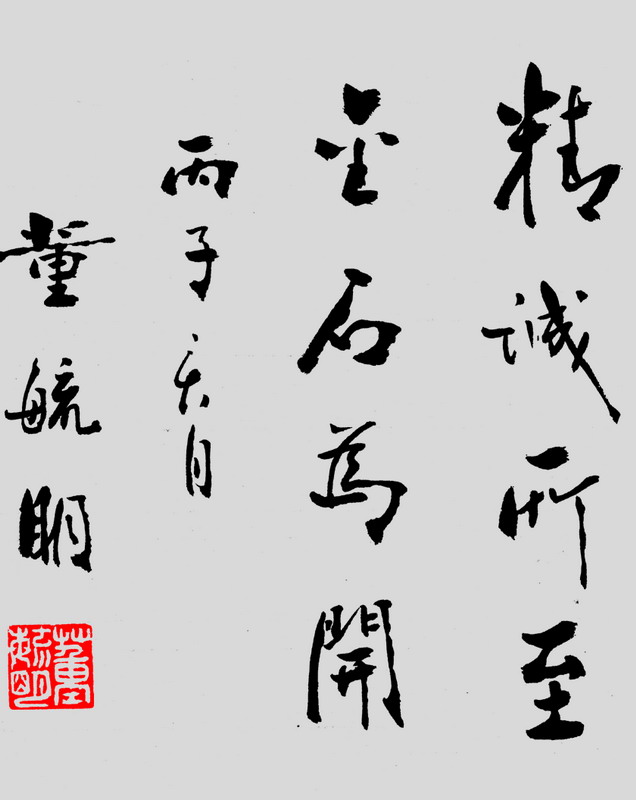 精诚所至
金石為開
丙子六月
董毓明
董毓明